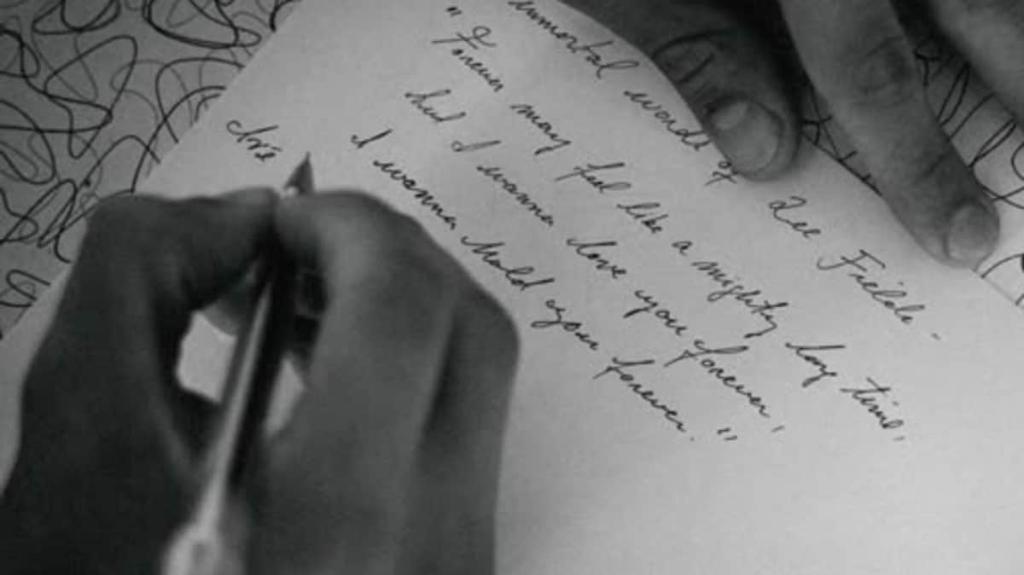 immortal words of Lee Fields -
"Forever may feel like a mighty long time,
but I wanna love you forever,
I wanna hold you forever."